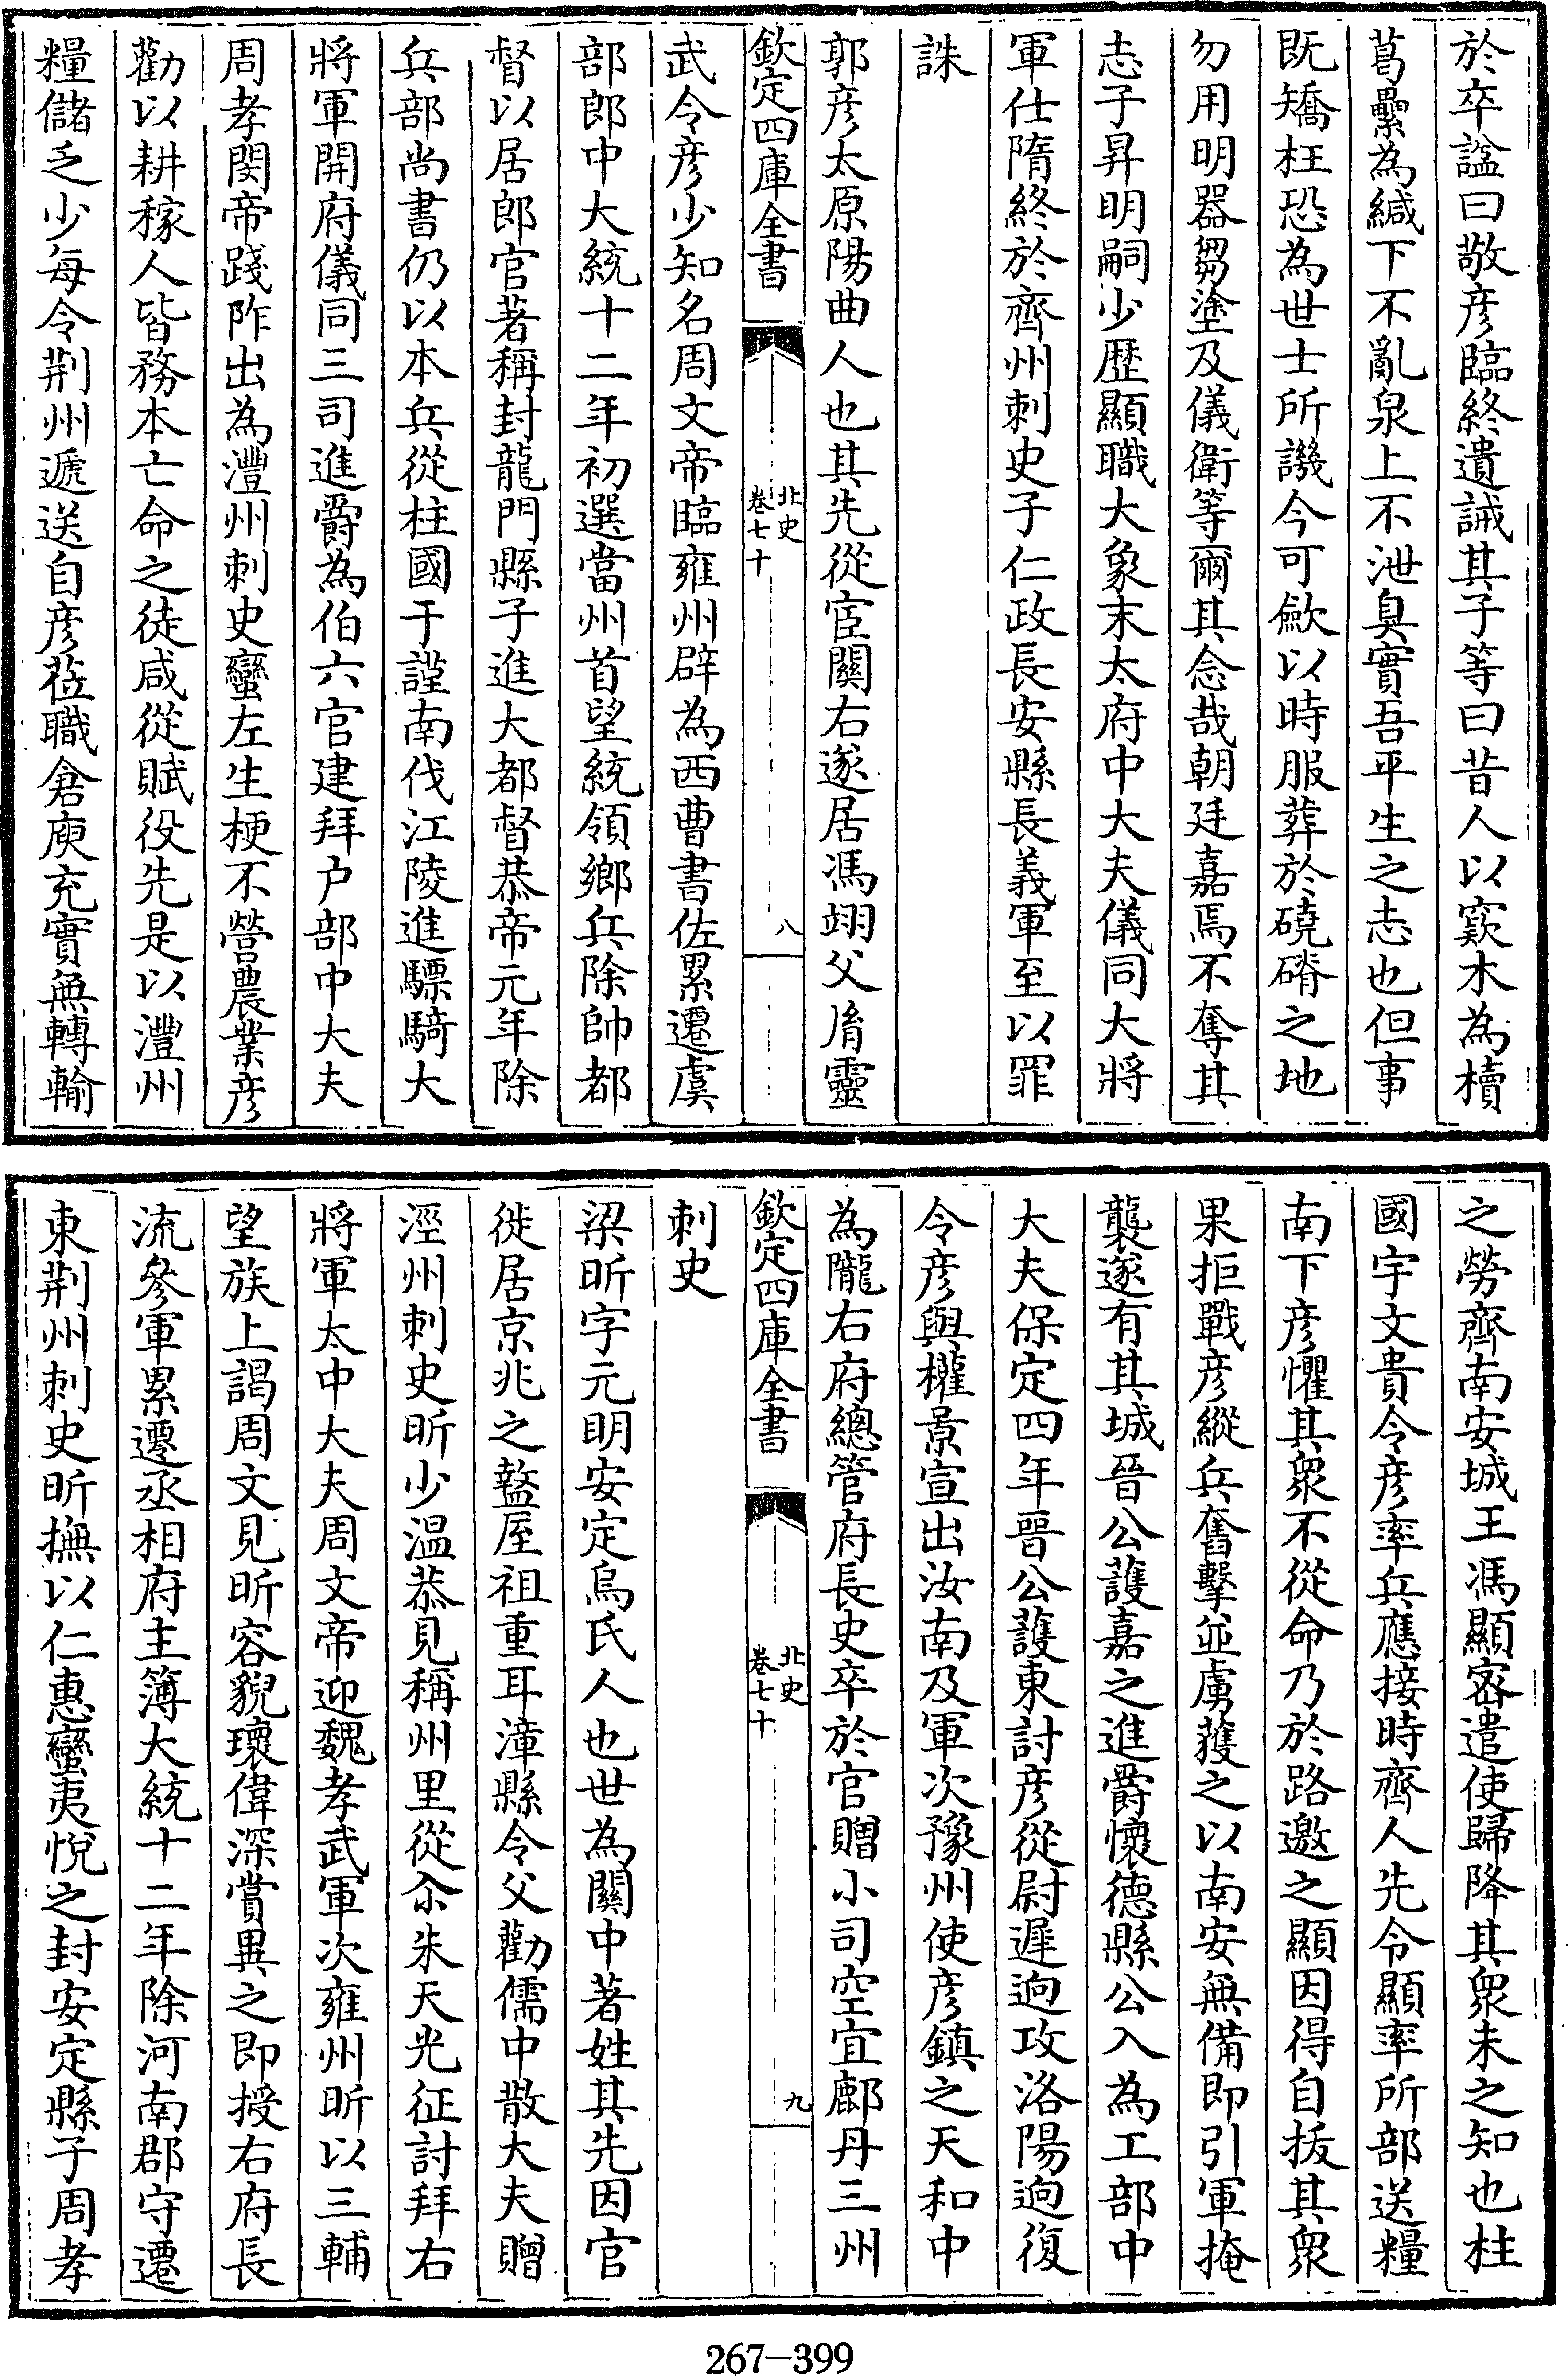 於卒諡曰敬彦臨終遺誡其子等曰昔人以窾木為櫝
葛纍為緘下不亂泉上不泄臭實吾平生之志也但事
既矯枉恐為世士所譏今可歛以時服葬於磽磪之地
勿用明器芻塗及儀衛等爾其念哉朝廷嘉焉不奪其
志子昇明嗣少歴顯職大象末太府中大夫儀同大將
軍仕隋終於齊州刺史子仁政長安縣長義軍至以罪
誅
郭彦太原陽曲人也其先從宦關右遂居馮翊父胤靈
欽定四庫全書
北史
卷七十
八
武令彦少知名周文帝臨雍州辟為西曹書佐累遷虞
部郎中大統十二年初選當州首望統領鄉兵除帥都
督以居郎官著稱封龍門縣子進大都督恭帝元年除
兵部尚書仍以本兵從柱國于謹南伐江陵進驃騎大
將軍開府儀同三司進爵為伯六官建拜户部中大夫
周孝閔帝踐阼出為澧州刺史蠻左生梗不營農業彦
勸以耕稼人皆務本亡命之徒咸從賦役先是以澧州
糧儲乏少每令荆州遞送自彦莅職倉庾充實無轉輸
之勞齊南安城王馮顯密遣使歸降其衆未之知也柱
國宇文貴令彦率兵應接時齊人先令顯率所部送糧
南下彦懼其衆不從命乃於路邀之顯因得自拔其衆
果拒戰彦縱兵奮擊並虜獲之以南安無備即引軍掩
襲遂有其城晉公護嘉之進爵懷德縣公入為工部中
大夫保定四年晋公護東討彦從尉遲迥攻洛陽迥復
令彦與權景宣出汝南及軍次豫州使彦鎮之天和中
為隴右府總管府長史卒於官贈小司空宜鄜丹三州
欽定四庫全書
北史
卷七十
九
刺史
梁昕字元明安定烏氏人也世為關中著姓其先因官
徙居京兆之盩厔祖重耳漳縣令父勸儒中散大夫贈
涇州刺史昕少温恭見稱州里從尒朱天光征討拜右
將軍太中大夫周文帝迎魏孝武軍次雍州昕以三輔
望族上謁周文見昕容貌瓌偉深賞異之即授右府長
流參軍累遷丞相府主簿大統十二年除河南郡守遷
東荆州刺史昕撫以仁惠蠻夷悅之封安定縣子周孝
267-399